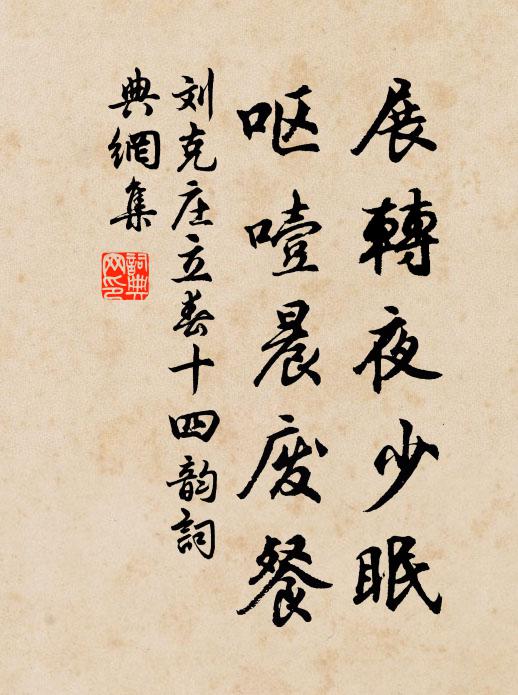 展轉夜少眠
呕噎晨废餐
刘克庄立春十四韵詞
典網集
詞典
网印